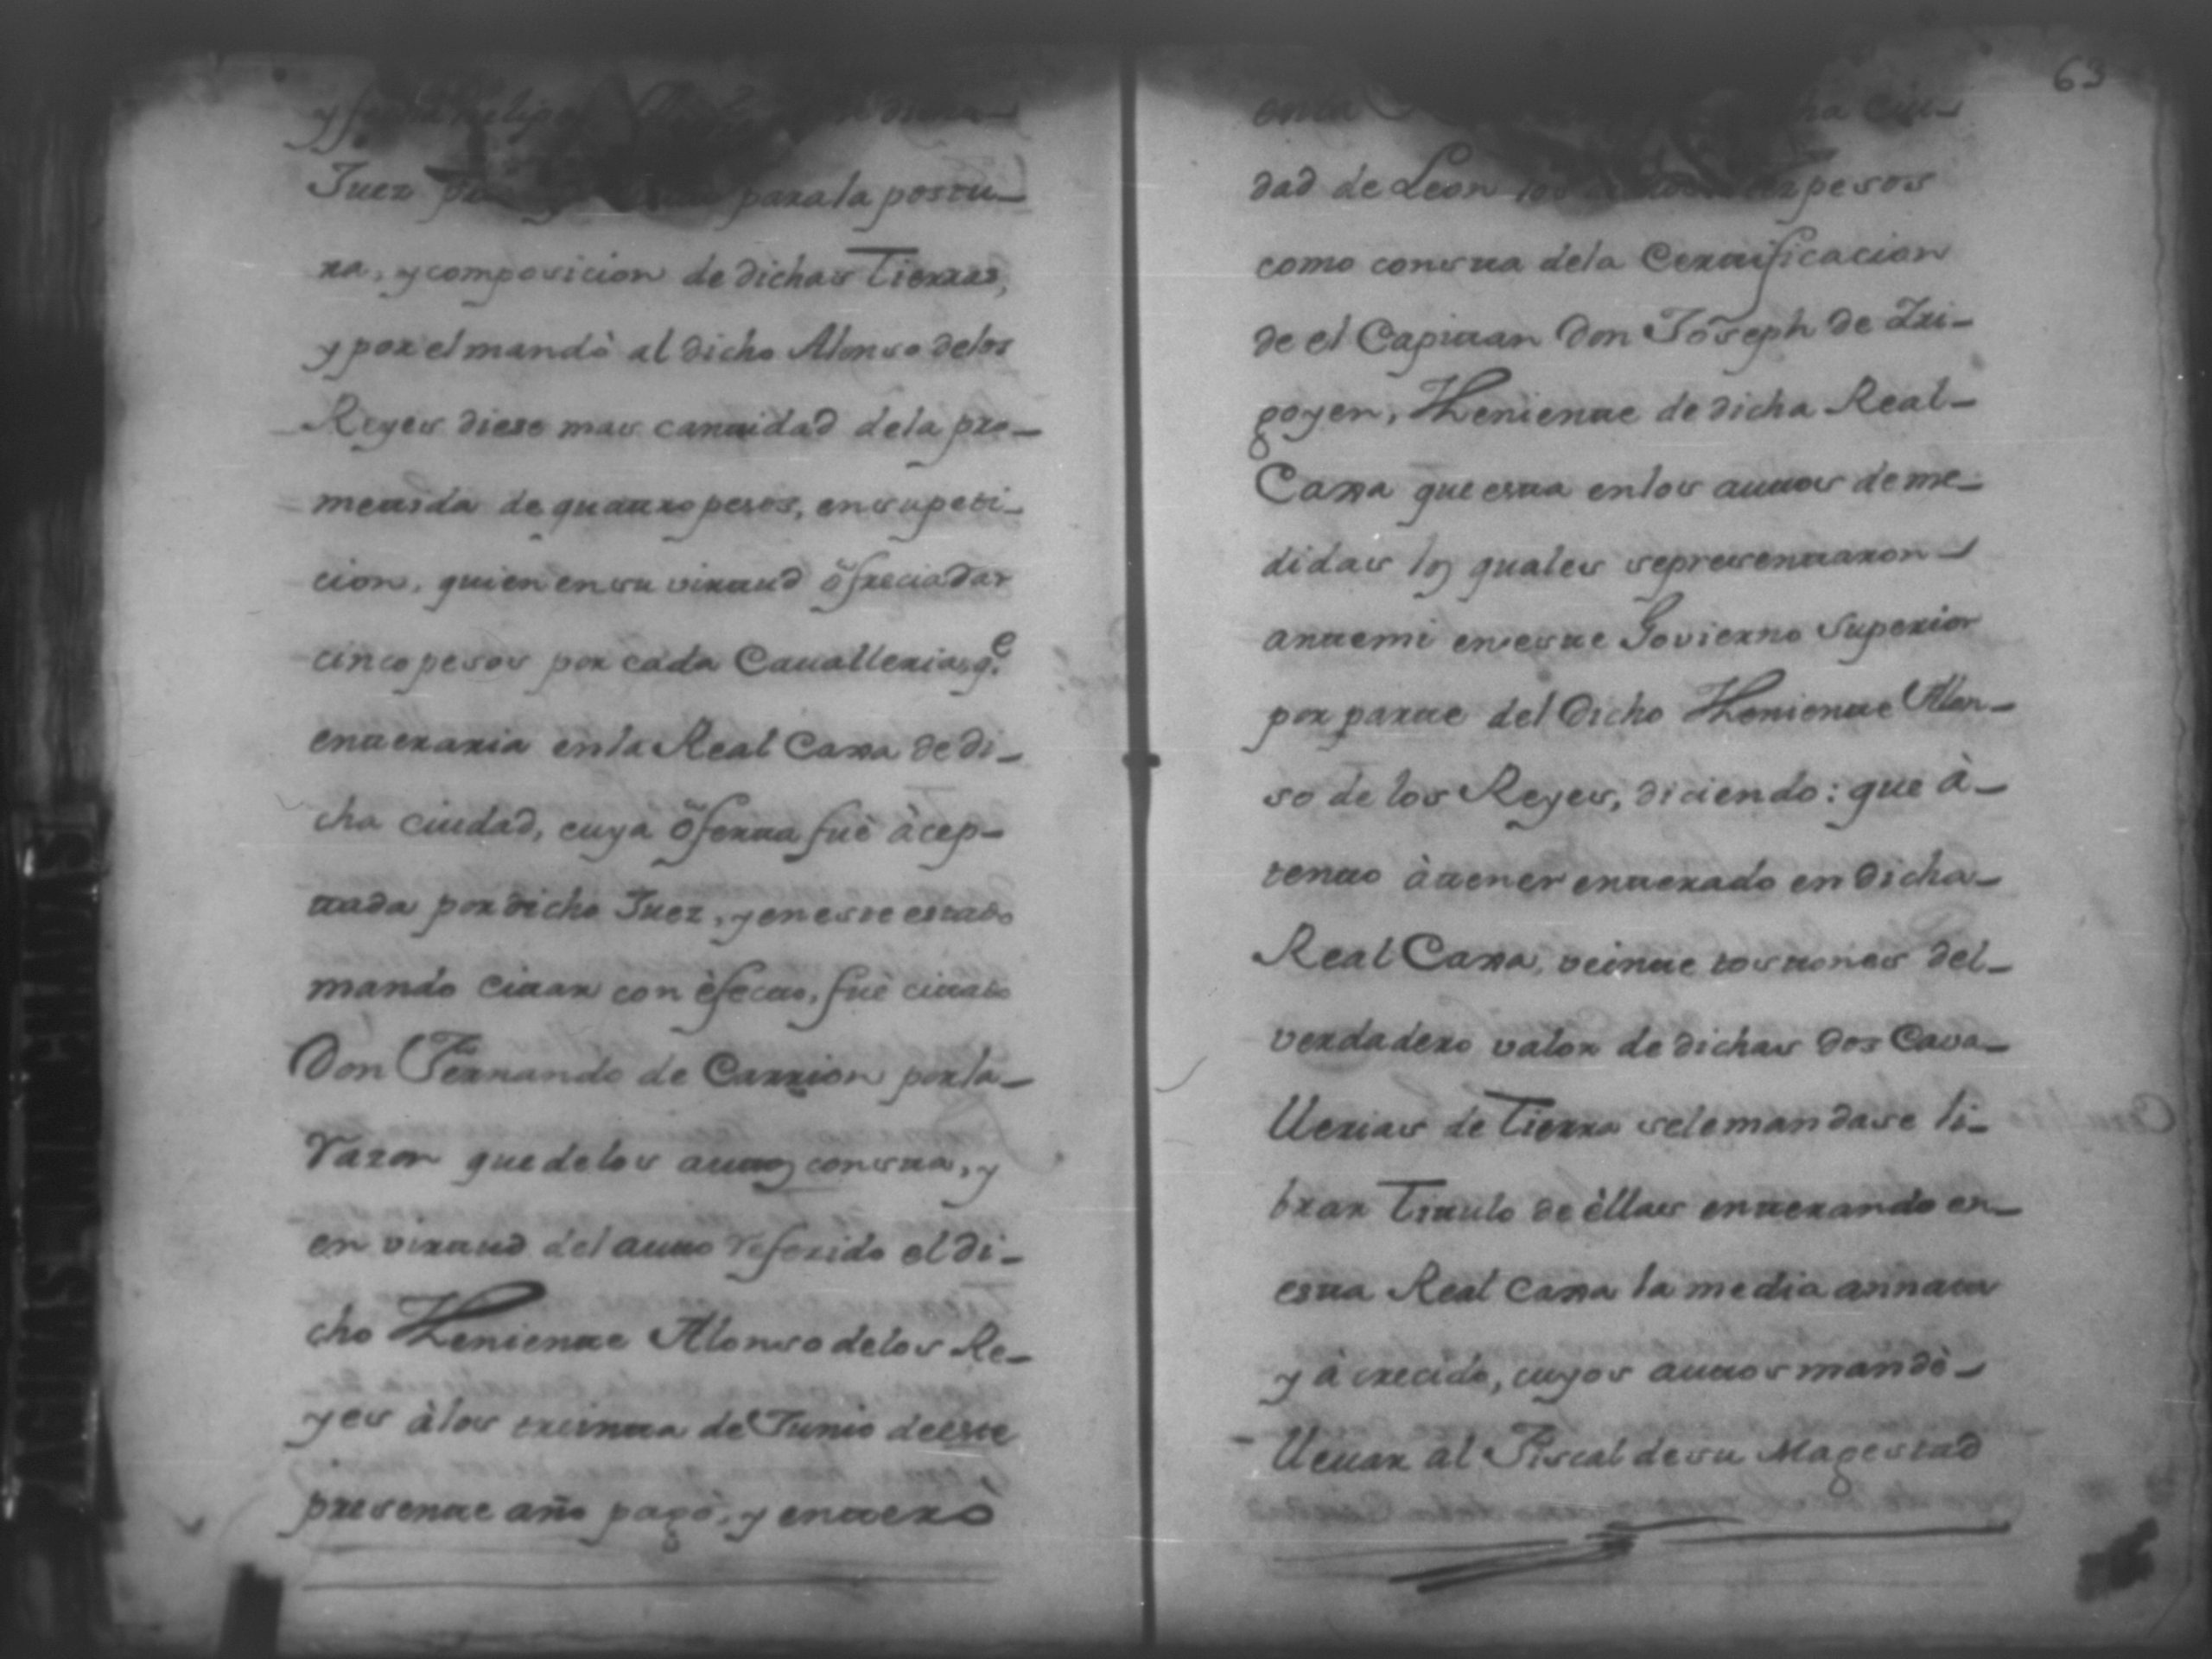 Juez para la postu-
ra, y composicion de dichas Tierras,
y por el mandò al dicho Alonso de los
Reyes diese mas cantidad de la pro-
metida de quatro pesos, en su peti-
cion, quien en su virtud ofrecia dar
cinco pesos por cada Cavalleria, q.e
enteraria en la Real Caxa de di-
cha ciudad, cuya oferta fuè àcep-
tada por dicho Juez, y en este estado
mando citar con èfecto, fuè citado
Don Fernando de Carrion por la
razon que de los autos consta, y
en virtud del auto referido el di-
cho Theniente Alonso de los Re-
yes à los treinta de Junio de este
presente año pagò, y enterò
63
Ciu-
dad de Leon pesos
como consta de la Certificacion
de el Capitan Don Joseph de Iri-
goyen, Theniente de dicha Real
Caxa que esta en los autos de me-
didas los quales se presentaron
ante mi en este Govierno Superior
por parte del Dicho Theniente Alon-
so de los Reyes, diciendo: que à-
tento àtener enterado en dicha
Real Caxa, veinte tostones del
verdadero valor de dichas dos Cava-
llerias de Tierra se le mandase li-
brar Titulo de èllas enterando en
esta Real Caxa la media annata
y à crecido, cuyos autos mandè
llevar al Fiscal de su Magestad